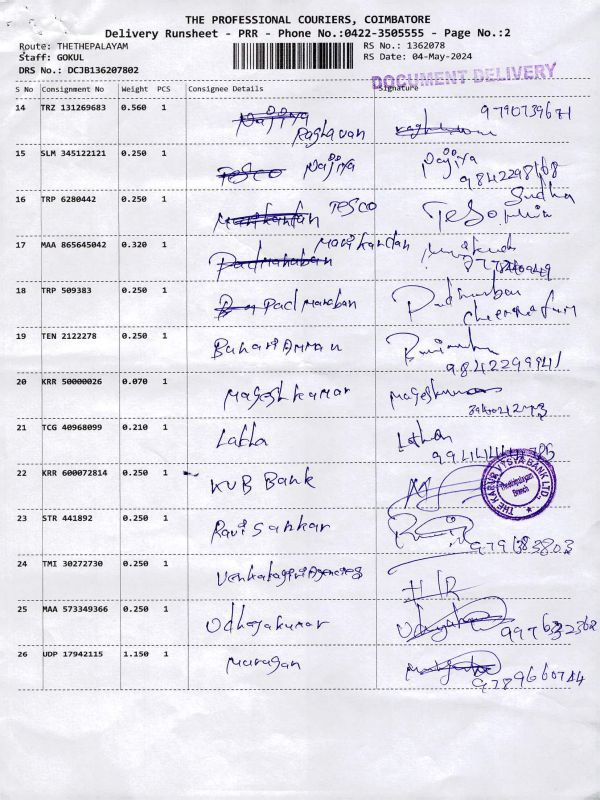 THE PROFESSIONAL COURIERS, COIMBATORE
Delivery Runsheet - PRR - Phone No.:0422-3505555 - Page No.:2
Route: THETHEPALAYAM
RS No.: 1362078
Staff: GOKUL
RS Date: 04-May-2024
DRS No.: DCJB136207802
DOCUMENT DELIVERY
S No Consignment No Weight PCS Consignee Details Signature
14 TRZ 131269683 0.560 1 Raghavan
15 SLM 345122121 0.250 1 Tesco Pajiya Pajiya
9842298168
16 TRP 6280442 0.250 1 Manikandan TESCO Sudha
17 MAA 865645042 0.320 1 Padmanaban Manikandan
18 TRP 509383 0.250 1 Padmanaban
19 TEN 2122278 0.250 1 Bannari Amman
9842299941
20 KRR 50000026 0.070 1 Mageshkumar Mageshkumar
21 TCG 40968099 0.210 1 Latha
22 KRR 600072814 0.250 1 KVB Bank
THE KARUR VYSYA BANK LTD.
Thethipalayam
Branch
23 STR 441892 0.250 1 Ravi Sankar
24 TMI 30272730 0.250 1 Venkatagiri Agencies H/R
25 MAA 573349366 0.250 1 Udhayakumar
26 UDP 17942115 1.150 1 Murugan
9789660744